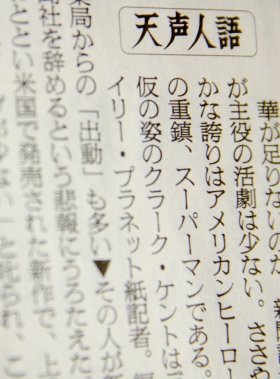 天声人語
華が足りないのか、新聞
が主役の活劇は少ない。ささや
かな誇りはアメリカンヒーロー
の重鎮、スーパーマンである。
仮の姿のクラーク・ケントはデ
イリー・プラネット紙記者。
集局からの「出動」も多い▼その人が
聞社を辞めるという悲報にうろたえた
ととい米国で発売された新作で、上
が少ない」と叱られ、こ